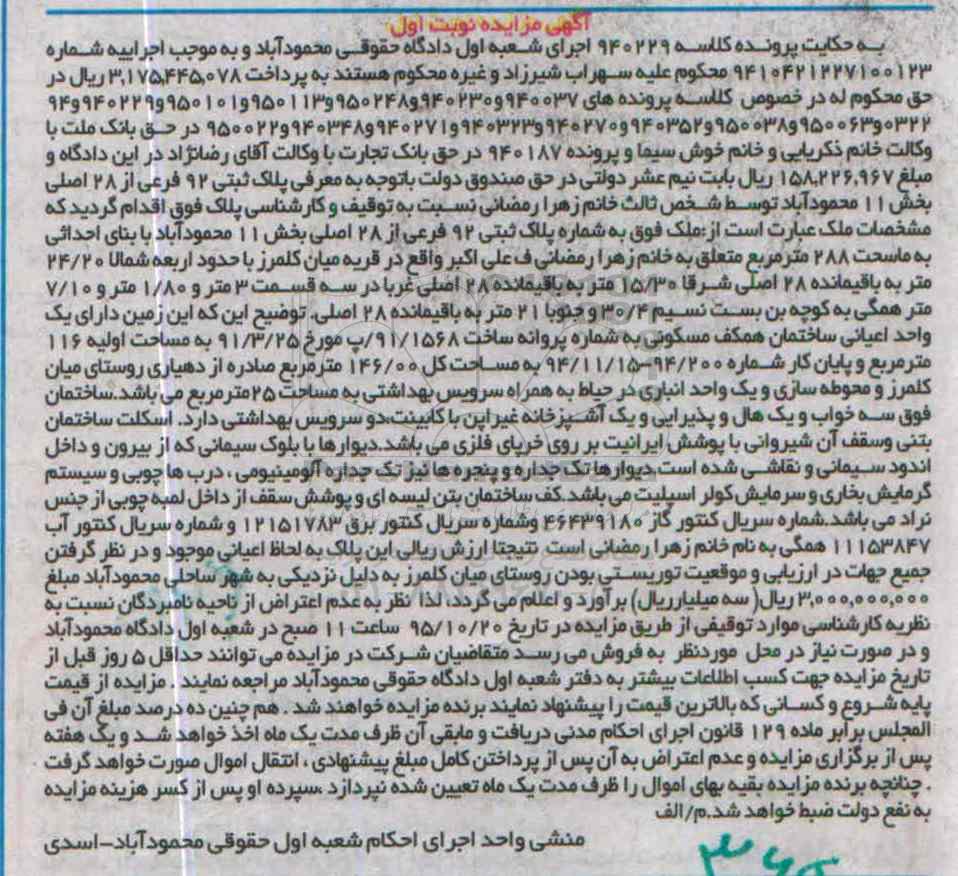 آگهی مزایده نوبت اول
به حکایت پرونده کلاسه ۹۴۰۲۲۹ اجرای شعبه اول دادگاه حقوقی محمودآباد و به موجب اجراییه شماره
۹۴۱۰۴۲۱۲۲۷۱۰۰۱۲۳ محکوم علیه سهراب شیرزاد و غیره محکوم هستند به پرداخت ۳,۱۷۵,۴۴۵,۰۷۸ ریال در
حق محکوم له در خصوص کلاسه پرونده های ۹۴۰۰۳۷و۹۴۰۲۳۰و۹۵۰۲۴۸و۹۵۰۱۱۳و۹۵۰۱۰۱و۹۴۰۲۲۹و۹۴
۰۳۲۲و۹۵۰۰۶۳و۹۵۰۰۳۸و۹۴۰۳۵۲و۹۴۰۲۷۰و۹۴۰۳۲۳و۹۴۰۲۷۱و۹۴۰۳۴۸و۹۵۰۰۲۲ در حق بانک ملت با
وکالت خانم ذکریایی و خانم خوش سیما و پرونده ۹۴۰۱۸۷ در حق بانک تجارت با وکالت آقای رضانژاد در این دادگاه و
مبلغ ۱۵۸,۲۲۶,۹۶۷ ریال بابت نیم عشر دولتی در حق صندوق دولت باتوجه به معرفی پلاک ثبتی ۹۲ فرعی از ۲۸ اصلی
بخش ۱۱ محمودآباد توسط شخص ثالث خانم زهرا رمضانی نسبت به توقیف و کارشناسی پلاک فوق اقدام گردید که
مشخصات ملک عبارت است از:ملک فوق به شماره پلاک ثبتی ۹۲ فرعی از ۲۸ اصلی بخش ۱۱ محمودآباد با بنای احداثی
به ماسحت ۲۸۸ مترمربع متعلق به خانم زهرا رمضانی ف علی اکبر واقع در قریه میان کلمرز با حدود اربعه شمالا ۲۴/۲۰
متر به باقیمانده ۲۸ اصلی شرقا ۱۵/۳۰ متر به باقیمانده ۲۸ اصلی غربا در سه قسمت ۳ متر و ۱/۸۰ متر و ۷/۱۰
متر همگی به کوچه بن بست نسیم ۳۰/۴ و جنوبا ۲۱ متر به باقیمانده ۲۸ اصلی. توضیح این که این زمین دارای یک
واحد اعیانی ساختمان همکف مسکونی به شماره پروانه ساخت ۹۱/۱۵۶۸/پ مورخ ۹۱/۳/۲۵ به مساحت اولیه ۱۱۶
مترمربع و پایان کار شماره ۹۴/۲۰۰-۹۴/۱۱/۱۵ به مساحت کل ۱۴۶/۰۰ مترمربع صادره از دهیاری روستای میان
کلمرز و محوطه سازی و یک واحد انباری در حیاط به همراه سرویس بهداشتی به مساحت ۲۵مترمربع می باشد.ساختمان
فوق سه خواب و یک هال و پذیرایی و یک آشپزخانه غیراپن با کابینت،دو سرویس بهداشتی دارد. اسکلت ساختمان
بتنی وسقف آن شیروانی با پوشش ایرانیت بر روی خرپای فلزی می باشد.دیوارها با بلوک سیمانی که از بیرون و داخل
اندود سیمانی و نقاشی شده است.دیوارها تک جداره و پنجره ها نیز تک جداره آلومینیومی ، درب ها چوبی و سیستم
گرمایش بخاری و سرمایش کولر اسپلیت می باشد.کف ساختمان بتن لیسه ای و پوشش سقف از داخل لمبه چوبی از جنس
نراد می باشد.شماره سریال کنتور گاز ۴۶۴۳۹۱۸۰ وشماره سریال کنتور برق ۱۲۱۵۱۷۸۳ و شماره سریال کنتور آب
۱۱۱۵۳۸۴۷ همگی به نام خانم زهرا رمضانی است نتیجتا ارزش ریالی این پلاک به لحاظ اعیانی موجود و در نظر گرفتن
جمیع جهات در ارزیابی و موقعیت توریستی بودن روستای میان کلمرز به دلیل نزدیکی به شهر ساحلی محمودآباد مبلغ
۳,۰۰۰,۰۰۰,۰۰۰ ریال( سه میلیارریال) برآورد و اعلام می گردد، لذا نظر به عدم اعتراض از ناحیه نامبردگان نسبت به
نظریه کارشناسی موارد توقیفی از طریق مزایده در تاریخ ۹۵/۱۰/۲۰ ساعت ۱۱ صبح در شعبه اول دادگاه محمودآباد
و در صورت نیاز در محل موردنظر به فروش می رسد متقاضیان شرکت در مزایده می توانند حداقل ۵ روز قبل از
تاریخ مزایده جهت کسب اطلاعات بیشتر به دفتر شعبه اول دادگاه حقوقی محمودآباد مراجعه نمایند . مزایده از قیمت
پایه شروع و کسانی که بالاترین قیمت را پیشنهاد نمایند برنده مزایده خواهند شد . هم چنین ده درصد مبلغ آن فی
المجلس برابر ماده ۱۲۹ قانون اجرای احکام مدنی دریافت و مابقی آن ظرف مدت یک ماه اخذ خواهد شد و یک هفته
پس از برگزاری مزایده و عدم اعتراض به آن پس از پرداختن کامل مبلغ پیشنهادی ، انتقال اموال صورت خواهد گرفت
. چنانچه برنده مزایده بقیه بهای اموال را ظرف مدت یک ماه تعیین شده نپردازد ،سپرده او پس از کسر هزینه مزایده
به نفع دولت ضبط خواهد شد.م/الف
منشی واحد اجرای احکام شعبه اول حقوقی محمودآباد-اسدی